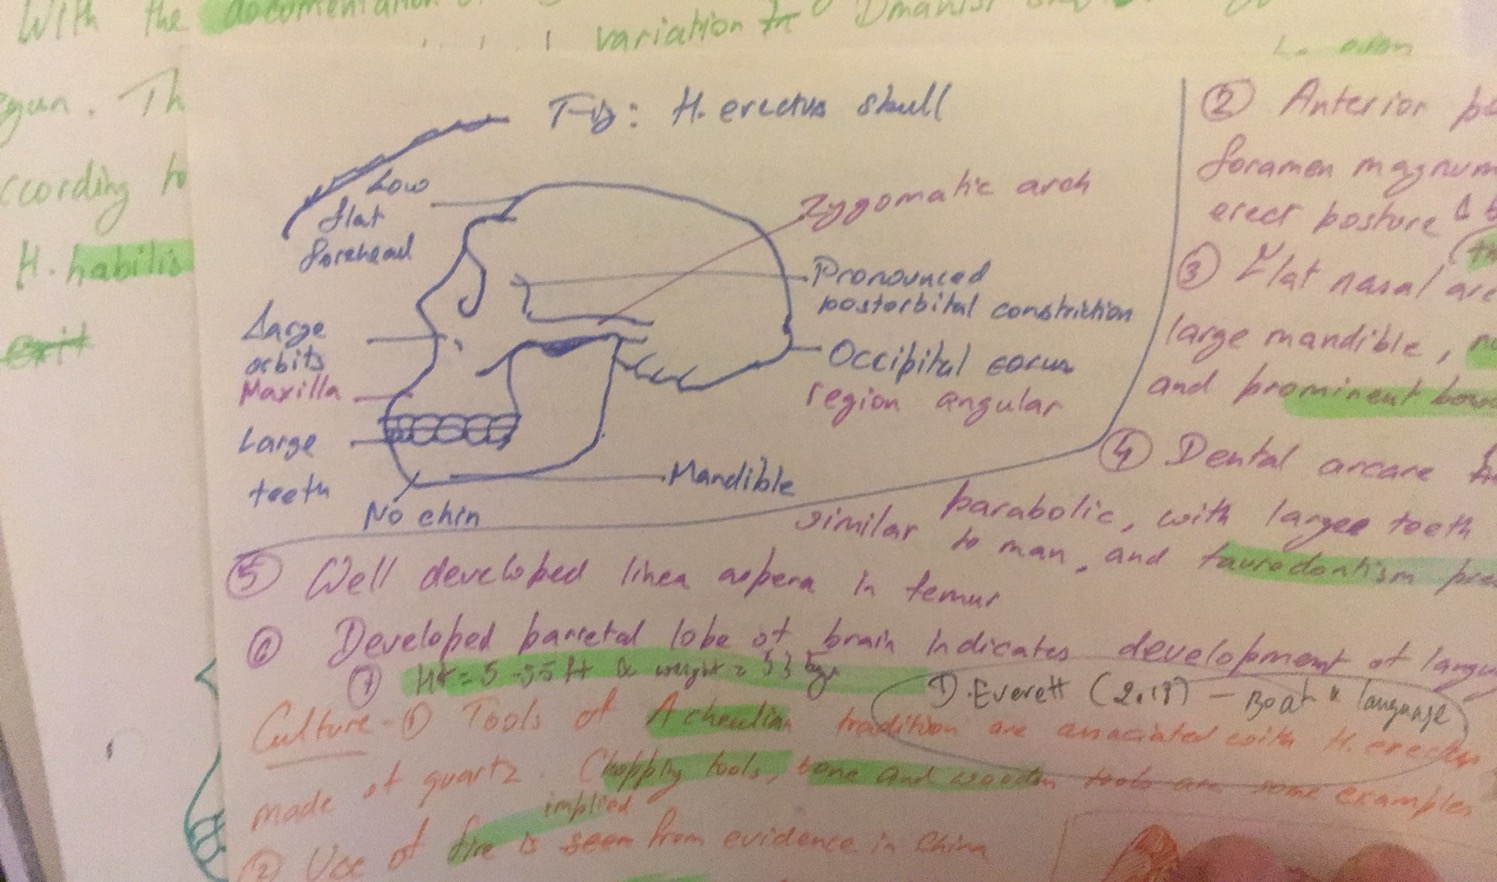 With the documentation
variation in Dmanisi
Th
ccording to
H. habilis
exit
Fig: H. erectus skull
Low
flat
forehead
Zygomatic arch
Pronounced
postorbital constriction
Large
orbits
Maxilla
Occipital torus
region angular
Large
teeth
Mandible
No chin
② Anterior
foramen magnum
erect posture
③ Flat nasal
large mandible,
and prominent
④ Dental arcare
parabolic, with large teeth
similar to man, and taurodontism
⑤ Well developed linea aspera in femur
⑥ Developed parietal lobe of brain indicates development of
⑦ Ht = 5 - 5.5 ft & weight = 53 kgs
D. Everett (2018) - Boat & language
Culture - ① Tools of Acheulian tradition are associated with H. erectus
made of quartz. Chopping tools, bone and wooden tools are some examples
implied
② Use of fire is seen from evidence in China